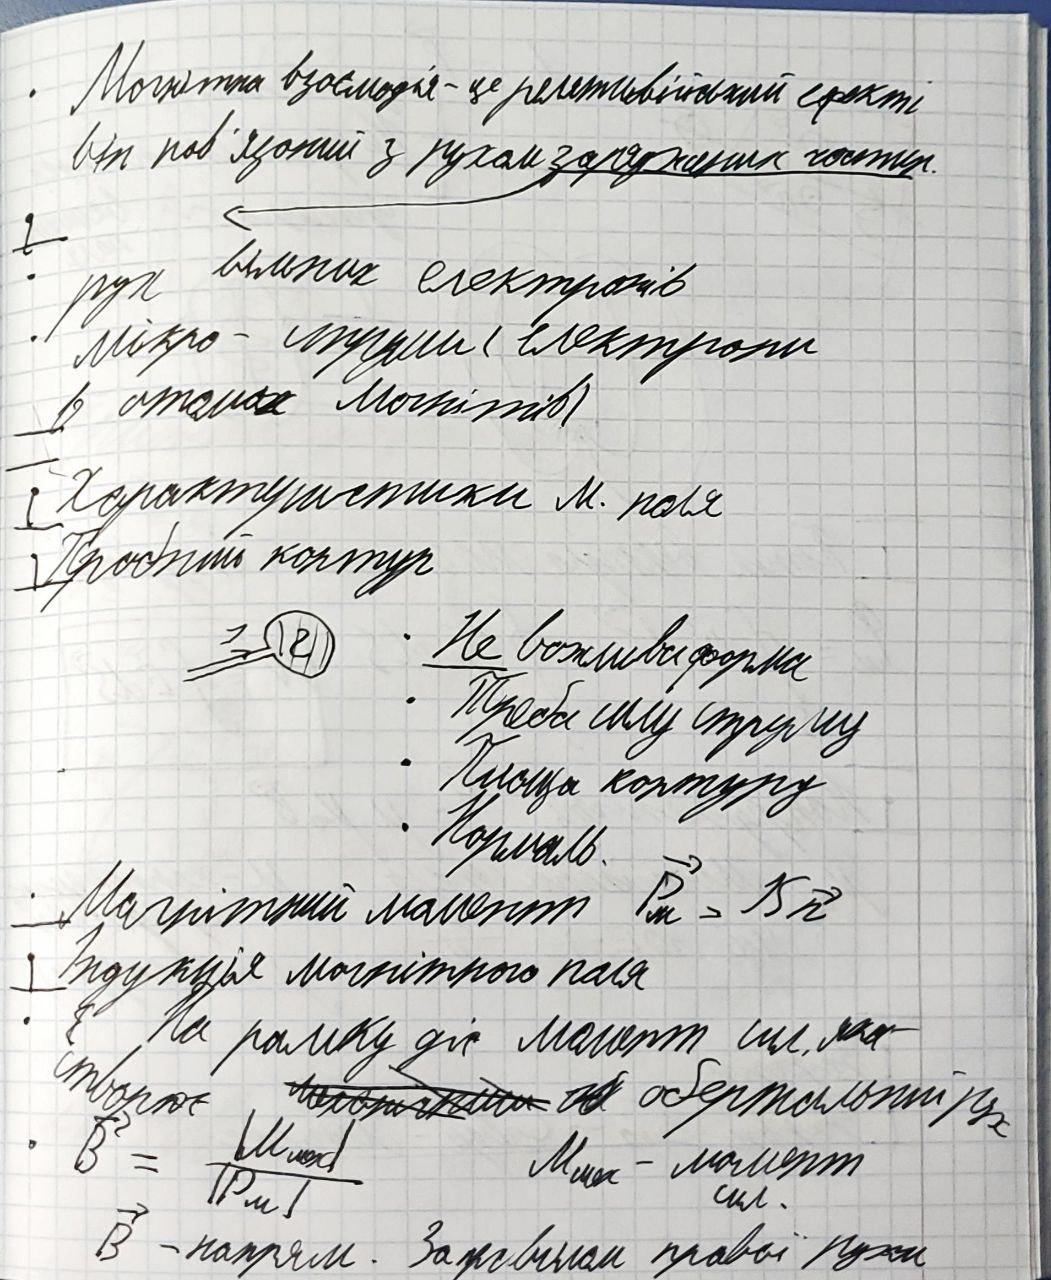 · Магнітна взаємодія - це релятивійський ефект і
він пов'язаний з рухом заряджених частин.
· рух вільних електронів
· мікро - струми (електрони
в атомах магнітів)
Характеристики м. поля
Пробний контур
· Не важлива форма
· Треба силу струму
· Площа контуру
· Нормаль.
· Магнітний момент P⃗м = ISn⃗
Індукція магнітного поля
· На рамку діє момент сил, яка
створює обертальний рух
· B⃗ = |Mmax| / |Pм| Mmax - момент
сил.
B⃗ - напрям. За правилом правої руки